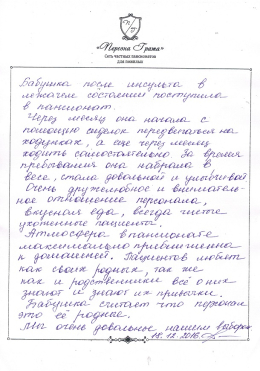 «Перепна Грата»
Сеть частных пансионатов
для пожилых
Бабушка после инсульта в
лежачем состоянии поступила
в пансионат.
Через месяц она начала с
помощью сиделок передвигаться на
ходунках, а еще через месяц
ходить самостоятельно. За время
пребывания она набрала в
весе, стала довольной и улыбчивой
Очень дружелюбное и вниматель-
ное отношение персонала,
вкусная еда, всегда чистые
ухоженные пациенты.
Атмосфера в пансионате
максимально приближенна
к домашней. Пациентов любят
как своих родных, так же
как и родственники всё о них
знают и знают их привычки.
Бабушка считает что персонал
это её родные.
Мы очень довольные нашим выбором
18.12.2016.